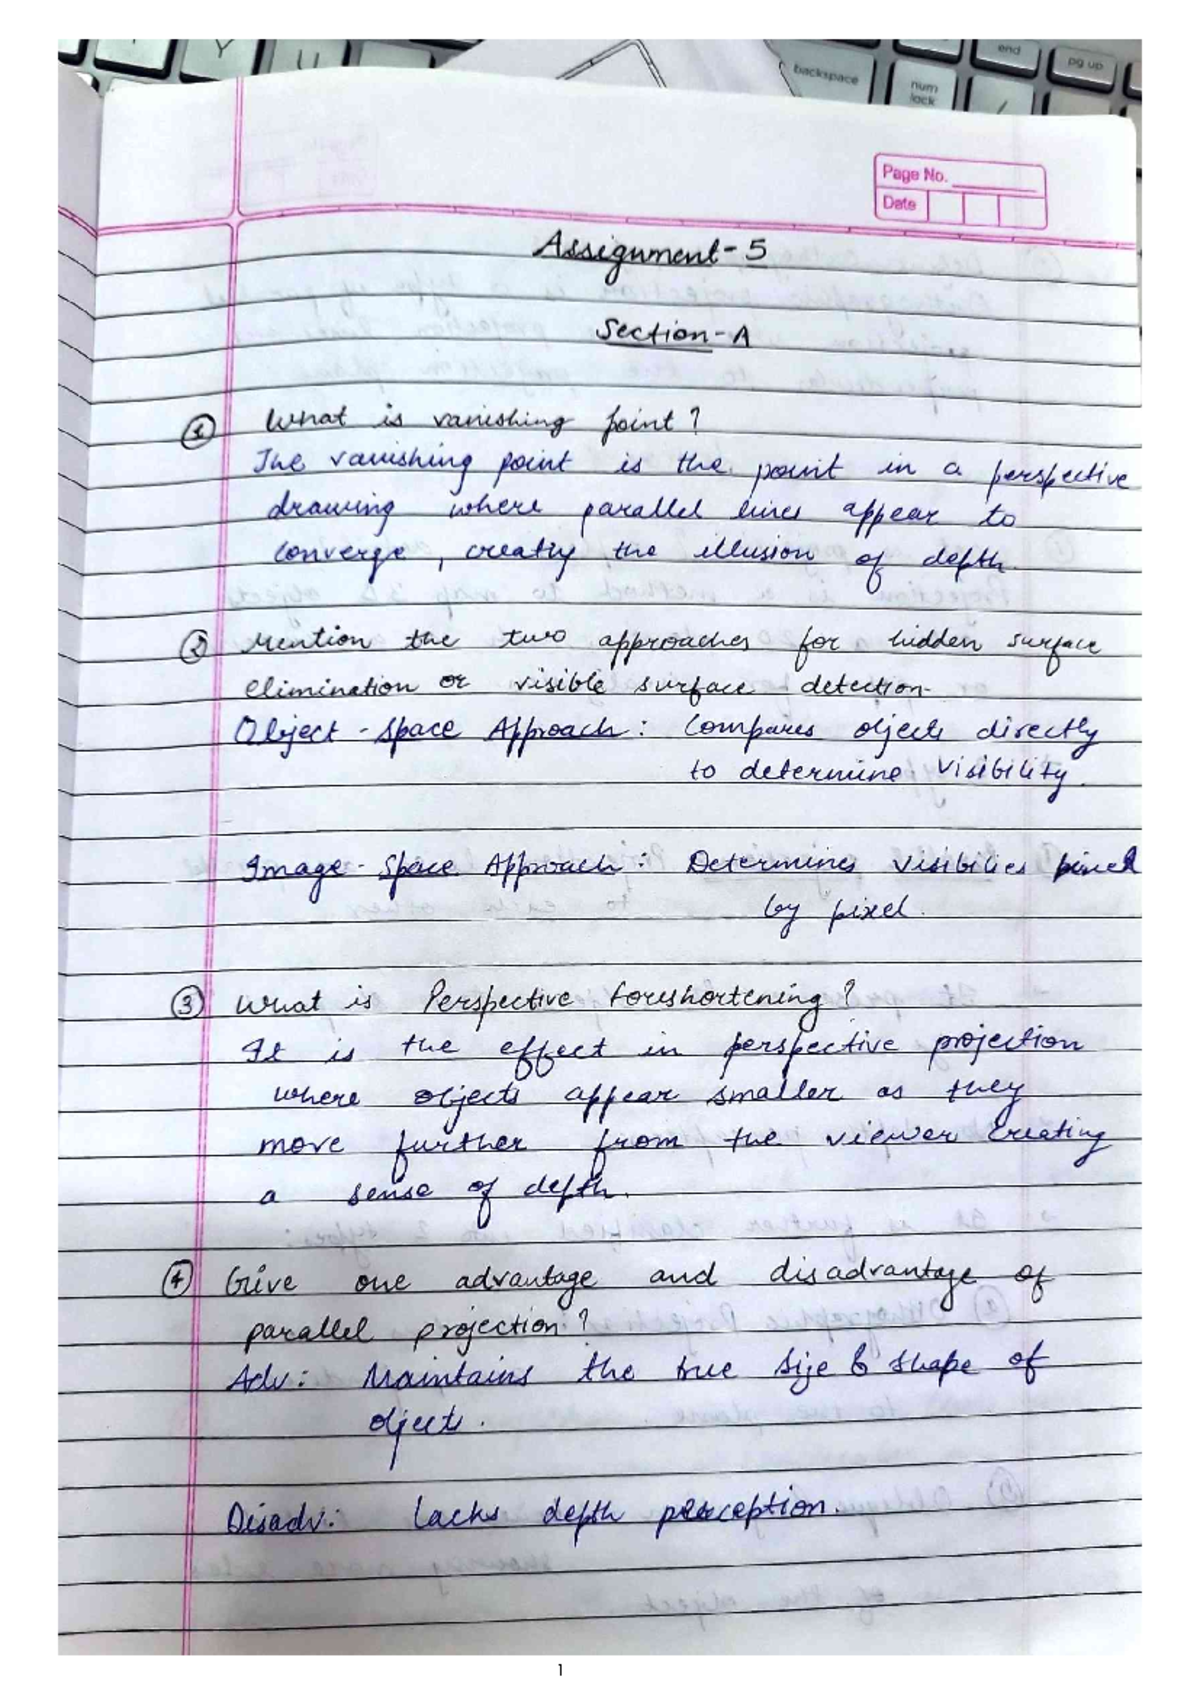 Y
U
backspace
num
lock
end
pg up
/
Page No.
Date
Assignment-5
Section-A
1 What is vanishing point?
The vanishing point is the point in a perspective
drawing where parallel lines appear to
converge, creatig the illusion of depth.
2 Mention the two approaches for hidden surface
elimination or visible surface detection-
Object-Space Approach: Compares objects directly
to determine visibility.
Image-Space Approach: Determines visibilies pixel
by pixel.
3 What is Perspective Foreshortening?
It is the effect in perspective projection
where objects appear smaller as they
move further from the viewer creating
a sense of depth.
4 Give one advantage and disadvantage of
parallel projection?
Adv: Maintains the true size & shape of
object.
Disadv: Lacks depth perception.
1